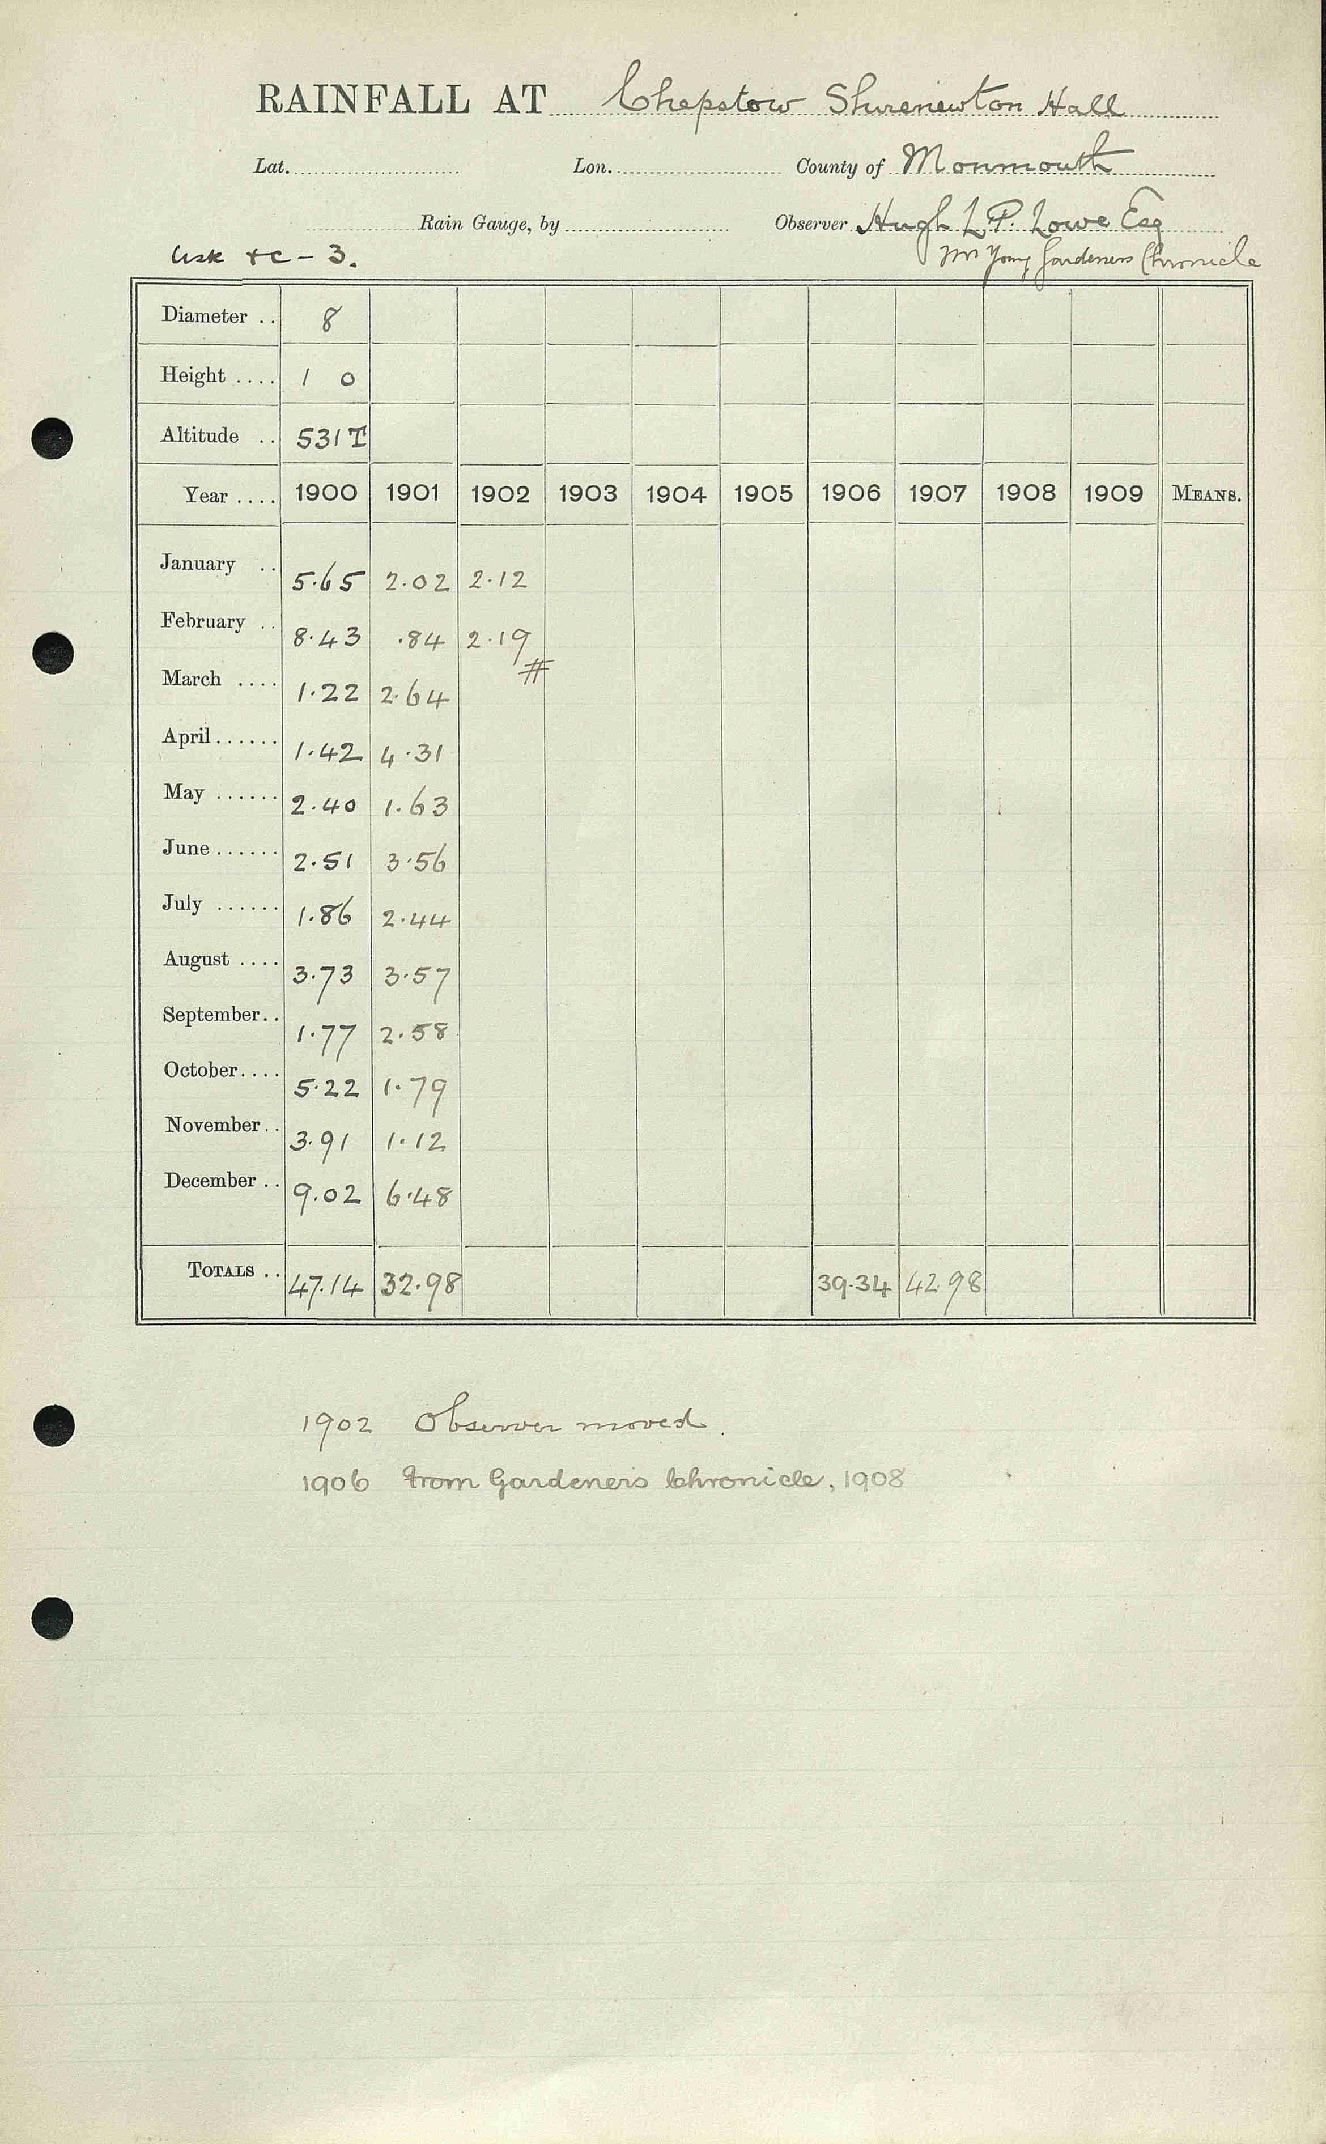 RAINFALL AT Chepstow Shirenewton Hall
Lat. Lon. County of Monmouth
Rain Gauge, by Observer Hugh L. P. Lowe Esq
Usk &c - 3. Mr Young Gardeners Chronicle
Diameter .. 8
Height .... 1 0
Altitude .. 531 T
Year .... 1900 1901 1902 1903 1904 1905 1906 1907 1908 1909 MEANS.
January .. 5.65 2.02 2.12
February .. 8.43 .84 2.19
#
March .... 1.22 2.64
April ...... 1.42 4.31
May ...... 2.40 1.63
June ...... 2.51 3.56
July ...... 1.86 2.44
August .... 3.73 3.57
September .. 1.77 2.58
October .... 5.22 1.79
November .. 3.91 1.12
December .. 9.02 6.48
TOTALS .. 47.14 32.98 39.34 42.98
1902 Observer moved.
1906 from Gardeners Chronicle, 1908